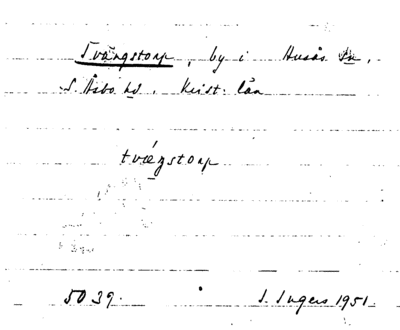 Tvängstorp, by i Husås sn,
S. Åsbo hd. Krist. län
tvæŋstorp
5039. I. Ingers 1951.